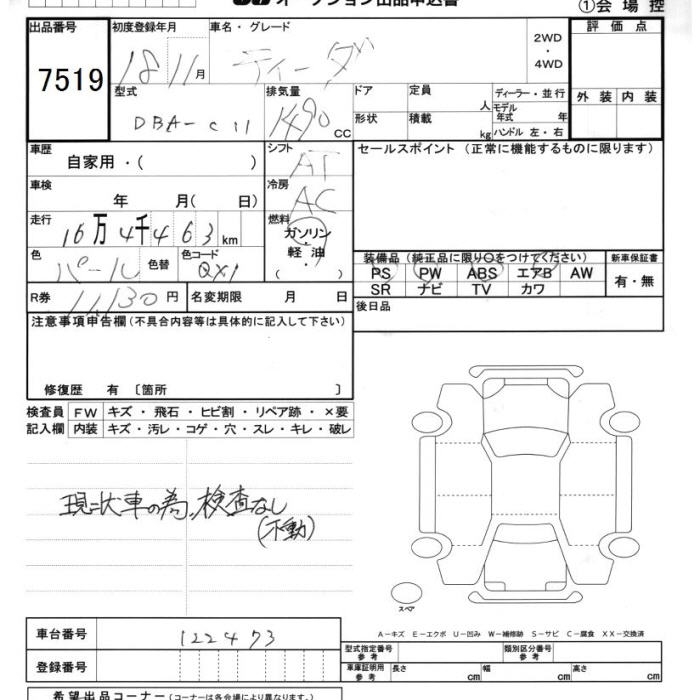 オークション出品申込書
①会場控
出品番号 7519
初度登録年月 18 11月
車名・グレード ティーダ
2WD・4WD
評価点
外装 内装
型式 DBA-C11
排気量 1490 CC
ドア 形状
定員 人
積載 kg
ディーラー・並行
モデル年式 年
ハンドル 左・右
車歴 自家用・( )
シフト AT
セールスポイント (正常に機能するものに限ります)
車検 年 月( 日)
冷房 AC
走行 16万4千463km
燃料 ガソリン・軽油・( )
色 パール 色替 色コード QX1
装備品 (純正品に限り○をつけてください)
新車保証書
PS PW ABS エアB AW
SR ナビ TV カワ
有・無
R券 11,130円 名変期限 月 日
後日品
注意事項申告欄 (不具合内容等は具体的に記入して下さい)
修復歴 有 〔箇所 〕
検査員記入欄
FW キズ・飛石・ヒビ割・リペア跡・×要
内装 キズ・汚レ・コゲ・穴・スレ・キレ・破レ
現状車の為、検査なし
(不動)
スペア
A－キズ E－エクボ U－凹み W－補修跡 S－サビ C－腐食 XX－交換済
車台番号 122473
登録番号
型式指定番号参考 類別区分番号
車庫証明用参考 長さ cm 幅 cm 高さ cm
希望出品コーナー (コーナーは各会場により異なります。)